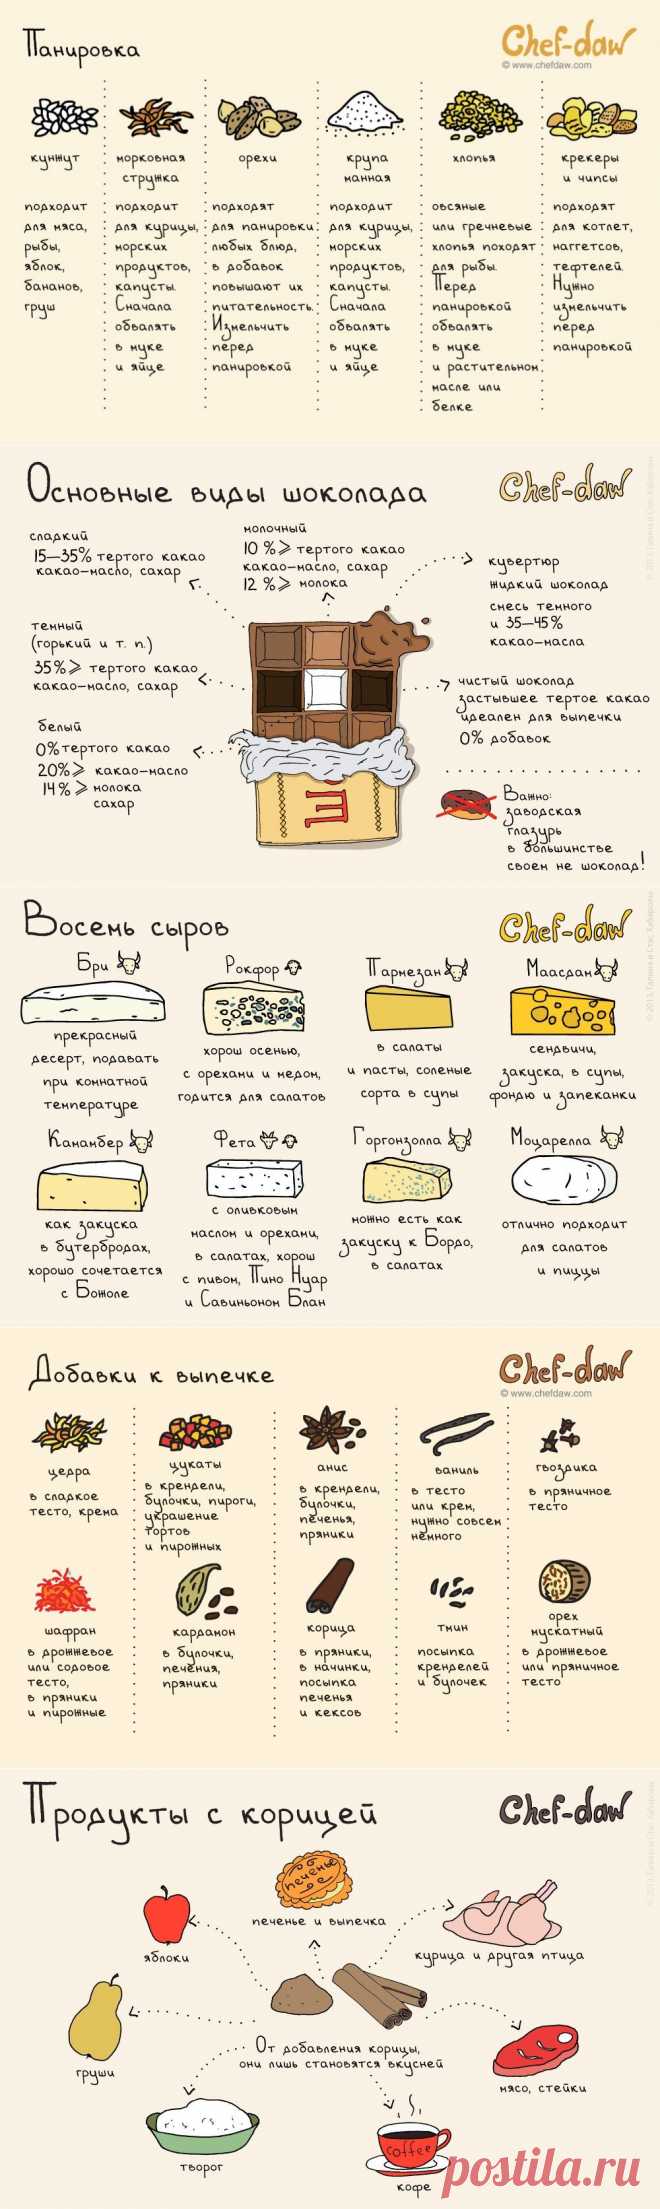 Панировка
Chef-daw
© www.chefdaw.com
кунжут
подходит
для мяса,
рыбы,
яблок,
бананов,
груш
морковная
стружка
подходит
для курицы,
морских
продуктов,
капусты.
Сначала
обвалять
в муке
и яйце
орехи
подходят
для панировки
любых блюд,
в добавок
повышают их
питательность.
Измельчить
перед
панировкой
крупа
манная
подходит
для курицы,
морских
продуктов,
капусты.
Сначала
обвалять
в муке
и яйце
хлопья
овсяные
или гречневые
хлопья походят
для рыбы.
Перед
панировкой
обвалять
в муке
и растительном
масле или
белке
крекеры
и чипсы
подходят
для котлет,
наггетсов,
тефтелей.
Нужно
измельчить
перед
панировкой
Основные виды шоколада
Chef-daw
сладкий
15—35% тертого какао
какао-масло, сахар
молочный
10 %⩾ тертого какао
какао-масло, сахар
12 %⩾ молока
кувертюр
жидкий шоколад
смесь темного
и 35—45%
какао-масла
темный
(горький и т. п.)
35%⩾ тертого какао
какао-масло, сахар
чистый шоколад
застывшее тертое какао
идеален для выпечки
0% добавок
белый
0% тертого какао
20%⩾ какао-масло
14%⩾ молока
сахар
Важно:
заводская
глазурь
в большинстве
своем не шоколад!
Восемь сыров
Chef-daw
Бри
прекрасный
десерт, подавать
при комнатной
температуре
Рокфор
хорош осенью,
с орехами и медом,
годится для салатов
Пармезан
в салаты
и пасты, соленые
сорта в супы
Маасдам
сендвичи,
закуска, в супы,
фондю и запеканки
Камамбер
как закуска
в бутербродах,
хорошо сочетается
с Божоле
Фета
с оливковым
маслом и орехами,
в салатах, хорош
с пивом, Пино Нуар
и Савиньоном Блан
Горгонзолла
можно есть как
закуску к Бордо,
в салатах
Моцарелла
отлично подходит
для салатов
и пиццы
Добавки к выпечке
Chef-daw
© www.chefdaw.com
цедра
в сладкое
тесто, крема
цукаты
в крендели,
булочки, пироги,
украшение
тортов
и пирожных
анис
в крендели,
булочки,
печенья,
пряники
ваниль
в тесто
или крем,
нужно совсем
немного
гвоздика
в пряничное
тесто
шафран
в дрожжевое
или содовое
тесто,
в пряники
и пирожные
кардамон
в булочки,
печения,
пряники
корица
в пряники,
в начинки,
посыпка
печенья
и кексов
тмин
посыпка
кренделей
и булочек
орех
мускатный
в дрожжевое
или пряничное
тесто
Продукты с корицей
Chef-daw
печенье
печенье и выпечка
яблоки
курица и другая птица
груши
От добавления корицы,
они лишь становятся вкусней
мясо, стейки
творог
coffee
кофе
postila.ru